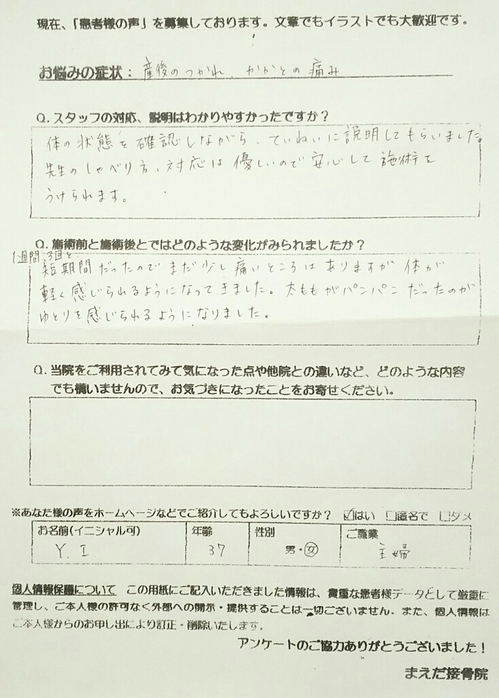 現在、「患者様の声」を募集しております。文章でもイラストでも大歓迎です。
お悩みの症状： 産後のつかれ、かかとの痛み
Q. スタッフの対応、説明はわかりやすかったですか？
体の状態を確認しながら、ていねいに説明してもらいました。
先生のしゃべり方、対応は優しいので安心して施術を
うけられます。
Q. 施術前と施術後とではどのような変化がみられましたか？
1週間 3回と
短期間だったのでまだ少し痛いところはありますが 体が
軽く感じられるようになってきました。太ももがパンパンだったのが
ゆとりを感じられるようになりました。
Q. 当院をご利用されてみて気になった点や他院との違いなど、どのような内容
でも構いませんので、お気づきになったことをお寄せください。
※あなた様の声をホームページなどでご紹介してもよろしいですか？ ☑はい □匿名で □ダメ
お名前(イニシャル可) 年齢 性別 ご職業
Y. I 37 男・女 主婦
個人情報保護について この用紙にご記入いただきました情報は、貴重な患者様データとして厳重に
管理し、ご本人様の許可なく外部への開示・提供することは一切ございません。また、個人情報は
ご本人様からのお申し出により訂正・削除いたします。
アンケートのご協力ありがとうございました！
まえだ接骨院